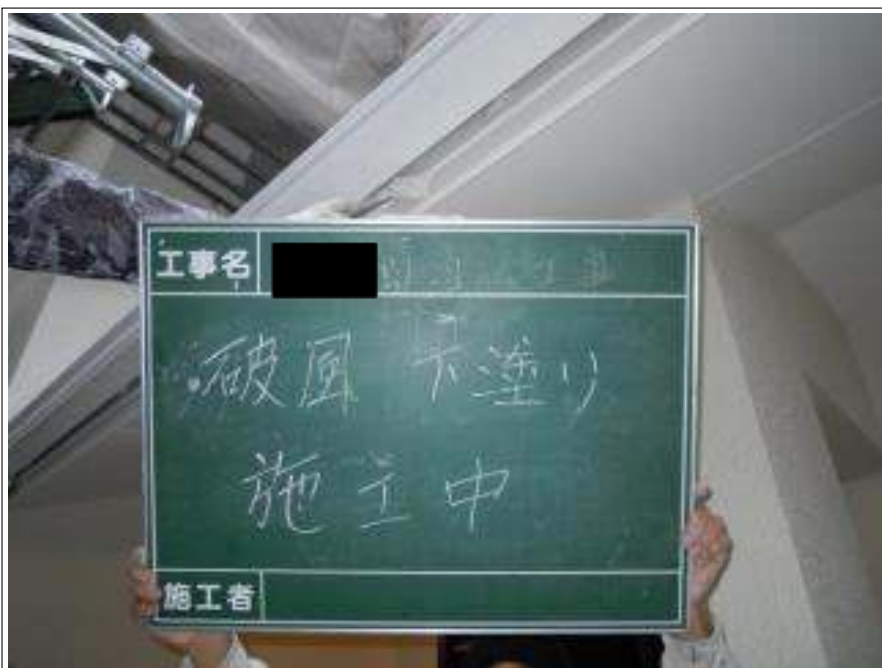 工事名
・破風 下塗り
施工中
施工者